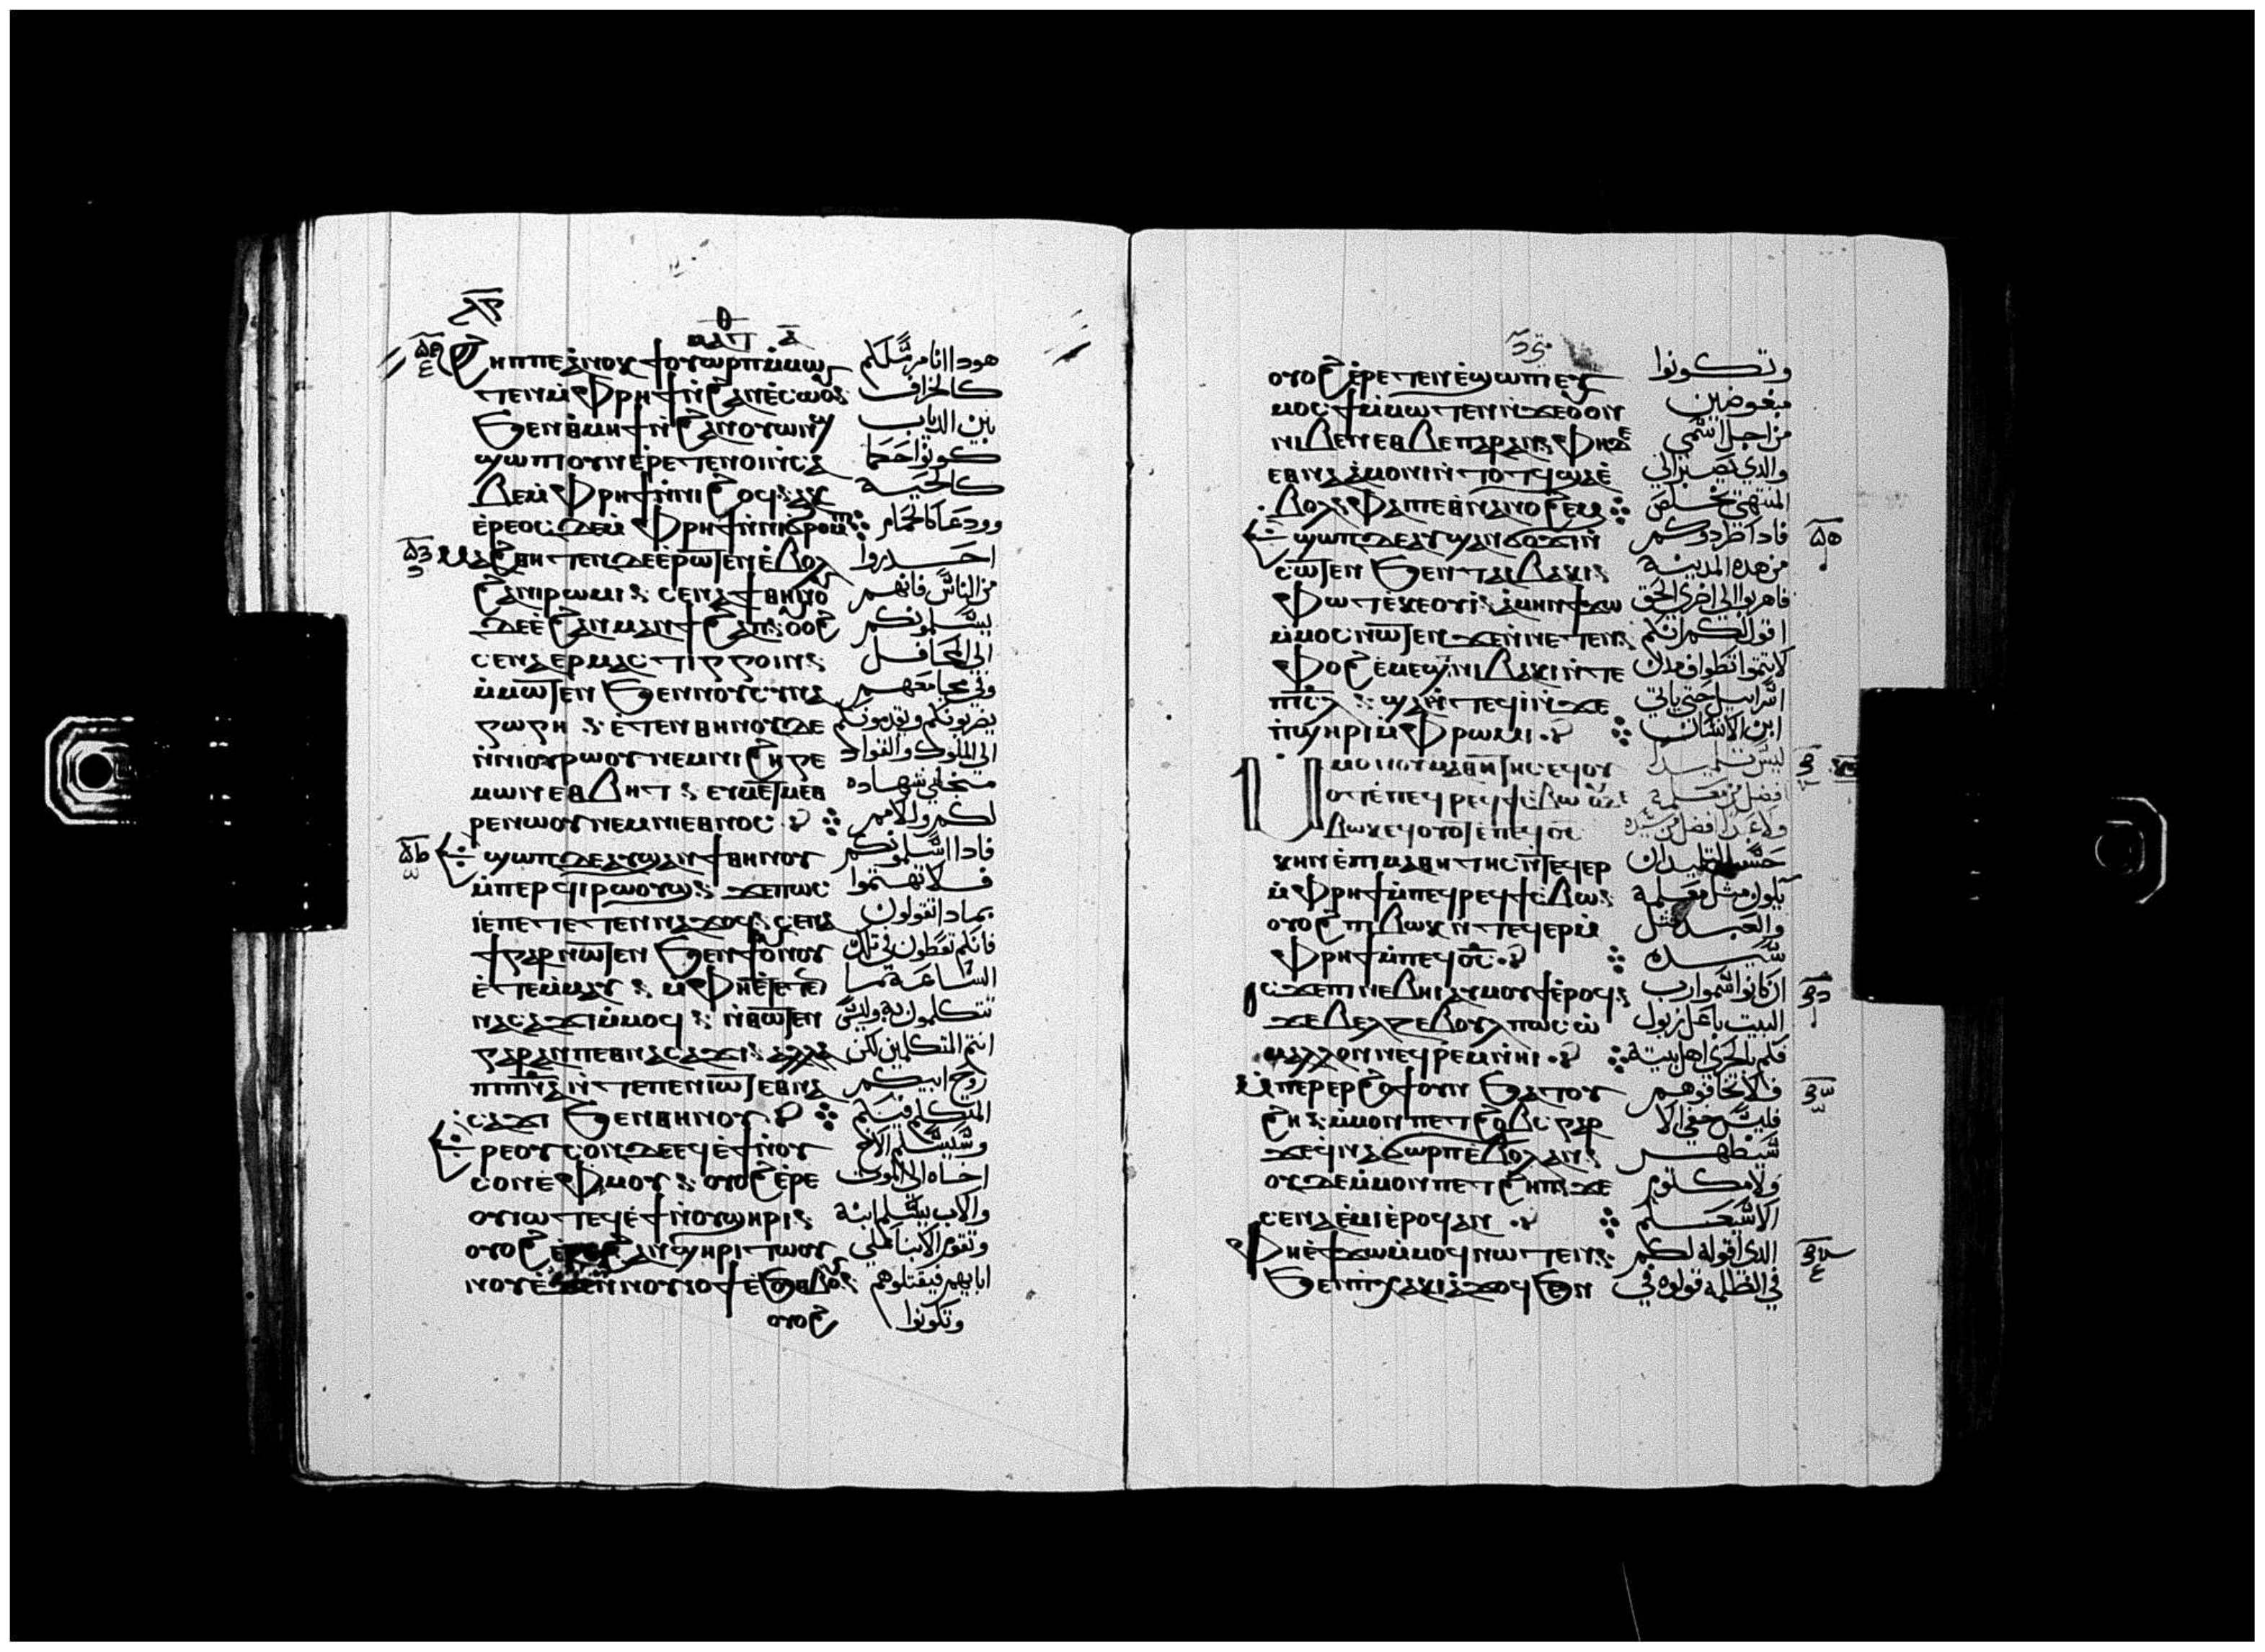 ⲙⲁⲧⲑ
ϩⲏⲡⲡⲉ ⲁⲛⲟⲕ ϯⲟⲩⲱⲣⲡ ⲙ̇ⲙⲱ هودا انا مرسلكم
ⲧⲉⲛ ⲙ̇ⲫⲣⲏϯ ⲛ̇ϩⲁⲛⲉ̇ⲥⲱⲟⲩ كالخراف
ϧⲉⲛ ⲑ̇ⲙⲏϯ ⲛ̇ϩⲁⲛⲟⲩⲱⲛϣ بين الدياب
ϣⲱⲡⲓ ⲟⲩⲛ ⲉ̇ⲣⲉⲧⲉⲛⲟⲓ ⲛ̇ⲥⲁ كونوا حكما
ⲃⲉ ⲙ̇ⲫⲣⲏϯ ⲛ̇ⲛⲓϩⲟϥ ⲁⲕ كالحية
ⲉ̇ⲣⲉⲟⲥ ⲇⲉ ⲙ̇ⲫⲣⲏϯ ⲛ̇ⲛⲓϭⲣⲟⲙⲡⲓ وودعا كالحمام
ⲙⲁϩⲑⲏⲧⲉⲛ ⲇⲉ ⲉ̇ⲣⲱⲧⲉⲛ ⲉ̇ⲃⲟⲗ احدروا
ϩⲁⲛⲓⲣⲱⲙⲓ ⲥⲉⲛⲁϯ ⲑⲏⲛⲟ من الناس فانهم
ⲇⲉ ⲉ̇ϩⲁⲛⲙⲁⲛϯϩⲁⲡ ⲟⲩⲟϩ يسلمونكم
ⲥⲉⲛⲁⲉⲣⲙⲁⲥⲧⲓⲅⲅⲟⲓⲛ الى المحافل
ⲙ̇ⲙⲱⲧⲉⲛ ϧⲉⲛ ⲛⲟⲩⲥⲩⲛⲁ وفي مجامعهم
ⲅⲱⲅⲏ ⲉ̇ⲧⲉⲛ ⲑⲏⲛⲟⲩ ⲇⲉ يضربونكم ويقدمونكم
ⲛ̇ⲛⲓⲟⲩⲣⲱⲟⲩ ⲛⲉⲙ ⲛⲓϩⲏⲅⲉ الى الملوك والقواد
ⲙⲱⲛ ⲉⲑⲃⲏⲧ ⲉⲩⲙⲉⲧⲙⲉⲑ من اجلي شهاده
ⲣⲉ ⲛⲱⲟⲩ ⲛⲉⲙ ⲛⲓⲉⲑⲛⲟⲥ لكم وللامم
ϣⲱⲡ ⲇⲉ ⲁⲩϣⲁⲛϯ ⲑⲏⲛⲟⲩ فادا اسلمونكم
ⲙ̇ⲡⲉⲣϥⲓⲣⲱⲟⲩϣ ϫⲉ ⲡⲱⲥ فلا تهتموا
ⲓⲉ ⲡⲉⲧⲉⲧⲉⲛⲛⲁϫⲟϥ ⲥⲉⲛⲁ بمادا تقولون
ϯ ⲅⲁⲣ ⲛⲱⲧⲉⲛ ϧⲉⲛ ϯⲟⲩⲛⲟⲩ فانكم تعطون في تلك
ⲉ̇ⲧⲉⲙ̇ⲙⲁⲩ ⲙ̇ⲫⲏⲉ̇ⲧⲉⲧⲉ الساعة ما
ⲛⲁⲥⲁϫⲓ ⲙ̇ⲙⲟϥ ⲛ̇ⲑⲱⲧⲉⲛ تتكلمون به وليس
ⲅⲁⲣ ⲁⲛ ⲡⲉⲑⲛⲁⲥⲁϫⲓ ⲁⲗⲗⲁ انتم المتكلمين لكن
ⲡⲓⲡⲛⲁ ⲛ̇ⲧⲉ ⲡⲉⲧⲉⲛⲓⲱⲧ ⲉⲑⲛⲁ روح ابيكم
ⲥⲁϫⲓ ϧⲉⲛ ⲑⲏⲛⲟⲩ المتكلم فيكم
ⲉⲣⲉ ⲟⲩⲥⲟⲛ ⲇⲉ ⲉϥⲉ̇ϯ ⲛ̇ⲟⲩ وسيسلم الاخ
ⲥⲟⲛ ⲉ̇ⲫⲙⲟⲩ ⲟⲩⲟϩ ⲉ̇ⲣⲉ اخاه الى الموت
ⲟⲩⲓⲱⲧ ⲉϥⲉ̇ϯ ⲛ̇ⲟⲩϣⲏⲣⲓ والاب يسلم ابنه
ⲟⲩⲟϩ ⲉ̇ⲣⲉ ϩⲁⲛϣⲏⲣⲓ ⲧⲱⲟⲩ وتقوم الابنا على
ⲛⲟⲩ ⲉ̇ϫⲉⲛ ⲛⲟⲩⲓⲟϯ ⲉ̇ϧⲟⲑⲃⲟⲩ ابايهم فيقتلوهم
ⲟⲩⲟϩ وتكونوا
ⲟⲩⲟϩ ⲉ̇ⲣⲉⲧⲉⲛⲉ̇ϣⲱⲡⲓ ⲉⲩ وتكونوا
ⲙⲟⲥϯ ⲙ̇ⲙⲱⲧⲉⲛ ⲛ̇ϫⲉ ⲟⲩⲟⲛ مبغوضين
ⲛⲓⲃⲉⲛ ⲉⲑⲃⲉ ⲡⲁⲣⲁⲛ ⲫⲏ ⲇⲉ من اجل اسمي
ⲉⲑⲛⲁⲁ̇ⲙⲟⲛⲓ ⲛ̇ⲧⲟⲧϥ ϣⲁⲉ̇ والدي يصبر الى
ⲃⲟⲗ ⲫⲁⲓ ⲡⲉⲑⲛⲁⲛⲟϩⲉⲙ المنتهى يخلص
ⲉϣⲱⲡ ⲇⲉ ⲁⲩϣⲁⲛϭⲟϫⲓ ⲛ̇ فادا طردوكم
ⲥⲱⲧⲉⲛ ϧⲉⲛ ⲧⲁⲓⲃⲁⲕⲓ من هده المدينة
ⲫⲱⲧ ⲉ̇ⲕⲉⲟⲩⲓ̇ ⲁ̇ⲙⲏⲛ ϯϫⲱ فاهربوا الى اخرى الحق
ⲙ̇ⲙⲟⲥ ⲛⲱⲧⲉⲛ ϫⲉ ⲛ̇ⲛⲉⲧⲉⲛ اقول لكم انكم
ⲫⲟϩ ⲉ̇ⲙⲉϣⲧ ⲛⲓⲃⲁⲕⲓ ⲛ̇ⲧⲉ لا تتموا تطواف مدن
ⲡⲓⲥⲗ ϣⲁⲛ̇ⲧⲉϥⲓ̇ ⲛ̇ϫⲉ اسراييل حتى ياتي
ⲡ̇ϣⲏⲣⲓ ⲙ̇ⲫⲣⲱⲙⲓ ابن الانسان
ⲙ̇ⲙⲟⲛ ⲟⲩⲙⲁⲑⲏⲧⲏⲥ ⲉϥⲟⲩ ليس تلميدا
ⲟⲧ ⲉ̇ⲡⲉϥⲣⲉϥϯⲥ̇ⲃⲱ ⲟⲩⲇⲉ افضل من معلمة
ⲃⲱⲕ ⲉϥⲟⲩⲟⲧ ⲉ̇ⲡⲉϥⲟⲥ ولا عبدا افضل من سيده
ⲕⲏⲛ ⲉ̇ⲡⲓⲙⲁⲑⲏⲧⲏⲥ ⲛ̇ⲧⲉϥⲉⲣ حسب التلميد ان
ⲙ̇ⲫⲣⲏϯ ⲙ̇ⲡⲉϥⲣⲉϥϯⲥ̇ⲃⲱ يكون مثل معلمة
ⲟⲩⲟϩ ⲡⲓⲃⲱⲕ ⲛ̇ⲧⲉϥⲉⲣ ⲙ̇ والعبد مثل
ⲫⲣⲏϯ ⲙ̇ⲡⲉϥⲟⲥ سيده
ⲓⲥϫⲉ ⲡⲓⲛⲉⲃⲏⲓ ⲁⲩⲙⲟⲩϯ ⲉ̇ⲣⲟϥ ان كانوا اسموا رب
ϫⲉ ⲃⲉⲗⲍⲉⲃⲟⲩⲗ ⲡⲱⲥⲱ البيت باعل زبول
ⲙⲁⲗⲗⲟⲛ ⲛⲉϥⲣⲉⲙⲛ̇ⲏⲓ فكم بالحرى اهل بيتة
ⲙ̇ⲡⲉⲣⲉⲣϩⲟϯ ⲟⲩⲛ ϧⲁⲧⲟⲩ فلا تخافوهم
ϩⲏ ⲙ̇ⲙⲟⲛ ⲡⲉⲧϩⲟⲃⲥ ⲅⲁⲣ فليس خفي الا
ϫⲉ ϥ̇ⲛⲁϭⲱⲣⲡ ⲉ̇ⲃⲟⲗ ⲁⲛ سيظهر
ⲟⲩⲇⲉ ⲙ̇ⲙⲟⲛ ⲡⲉⲧϩⲏⲡ ϫⲉ ولا مكتوم
ⲥⲉⲛⲁⲉ̇ⲙⲓ ⲉ̇ⲣⲟϥ ⲁⲛ الا سيعلم
ⲫⲏⲉ̇ϯϫⲱ ⲙ̇ⲙⲟϥ ⲛⲱⲧⲉⲛ الدي اقوله لكم
ϧⲉⲛ ⲡⲓⲭⲁⲕⲓ ⲁ̇ϫⲟϥ ϧⲉⲛ في الظلمه قولوه في